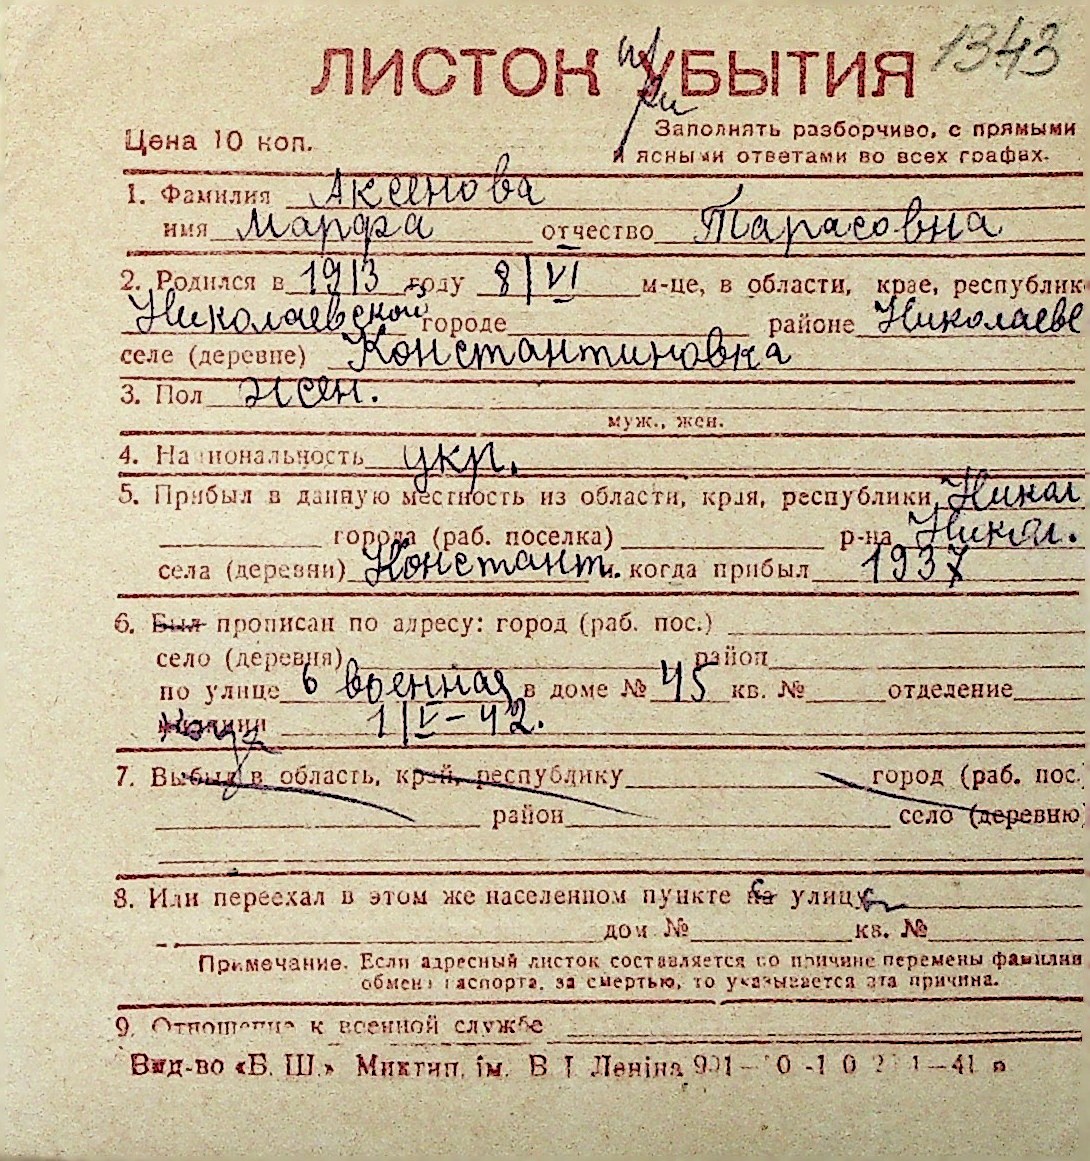 1343
ЛИСТОК УБЫТИЯ
при
Цена 10 коп.
Заполнять разборчиво, с прямыми
и ясными ответами во всех графах.
1. Фамилия Аксенова
имя Марфа отчество Тарасовна
2. Родился в 1913 году 8/VI м-це, в области, крае, республик
Николаевской городе районе Николаевс
селе (деревне) Константиновка
3. Пол жен.
муж., жен.
4. Национальность укр.
5. Прибыл в данную местность из области, края, республики Никол
города (раб. поселка) р-на Никол.
села (деревни) Констант. когда прибыл 1937
6. Был прописан по адресу: город (раб. пос.)
село (деревня) район
по улице 6 военная в доме № 45 кв. № отделение
милиции 1/V-42.
7. Выбыл в область, край, республику город (раб. пос.
район село (деревню)
8. Или переехал в этом же населенном пункте на с улицу ы
дом № кв. №
Примечание. Если адресный листок составляется по причине перемены фамилии
обмена паспорта, за смертью, то указывается эта причина.
9. Отношение к военной службе
Вид-во «Б. Ш.» Миктип. ім. В. І. Леніна